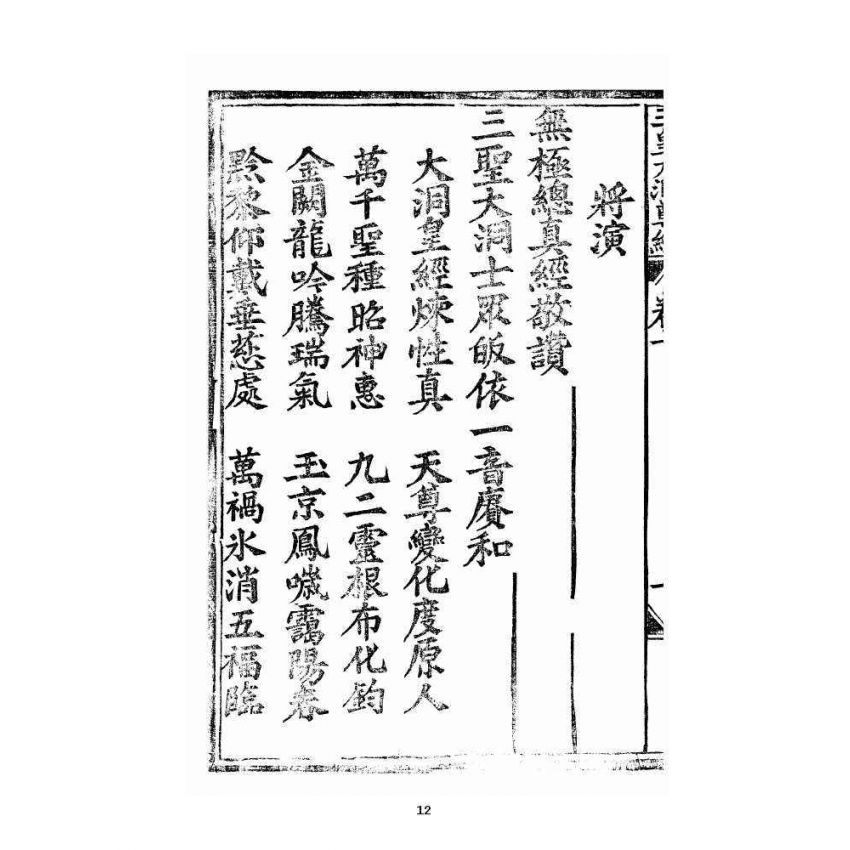 三皇大洞真經 卷一
將演
無極總真經敬讚
三聖大洞士眾皈依一音賡和
大洞皇經煉性真 天尊變化度原人
萬千聖種昭神惠 九二靈根布化鈞
金闕龍吟騰瑞氣 玉京鳳噦靄陽春
黔黎仰戴垂慈處 萬禍氷消五福臨
12